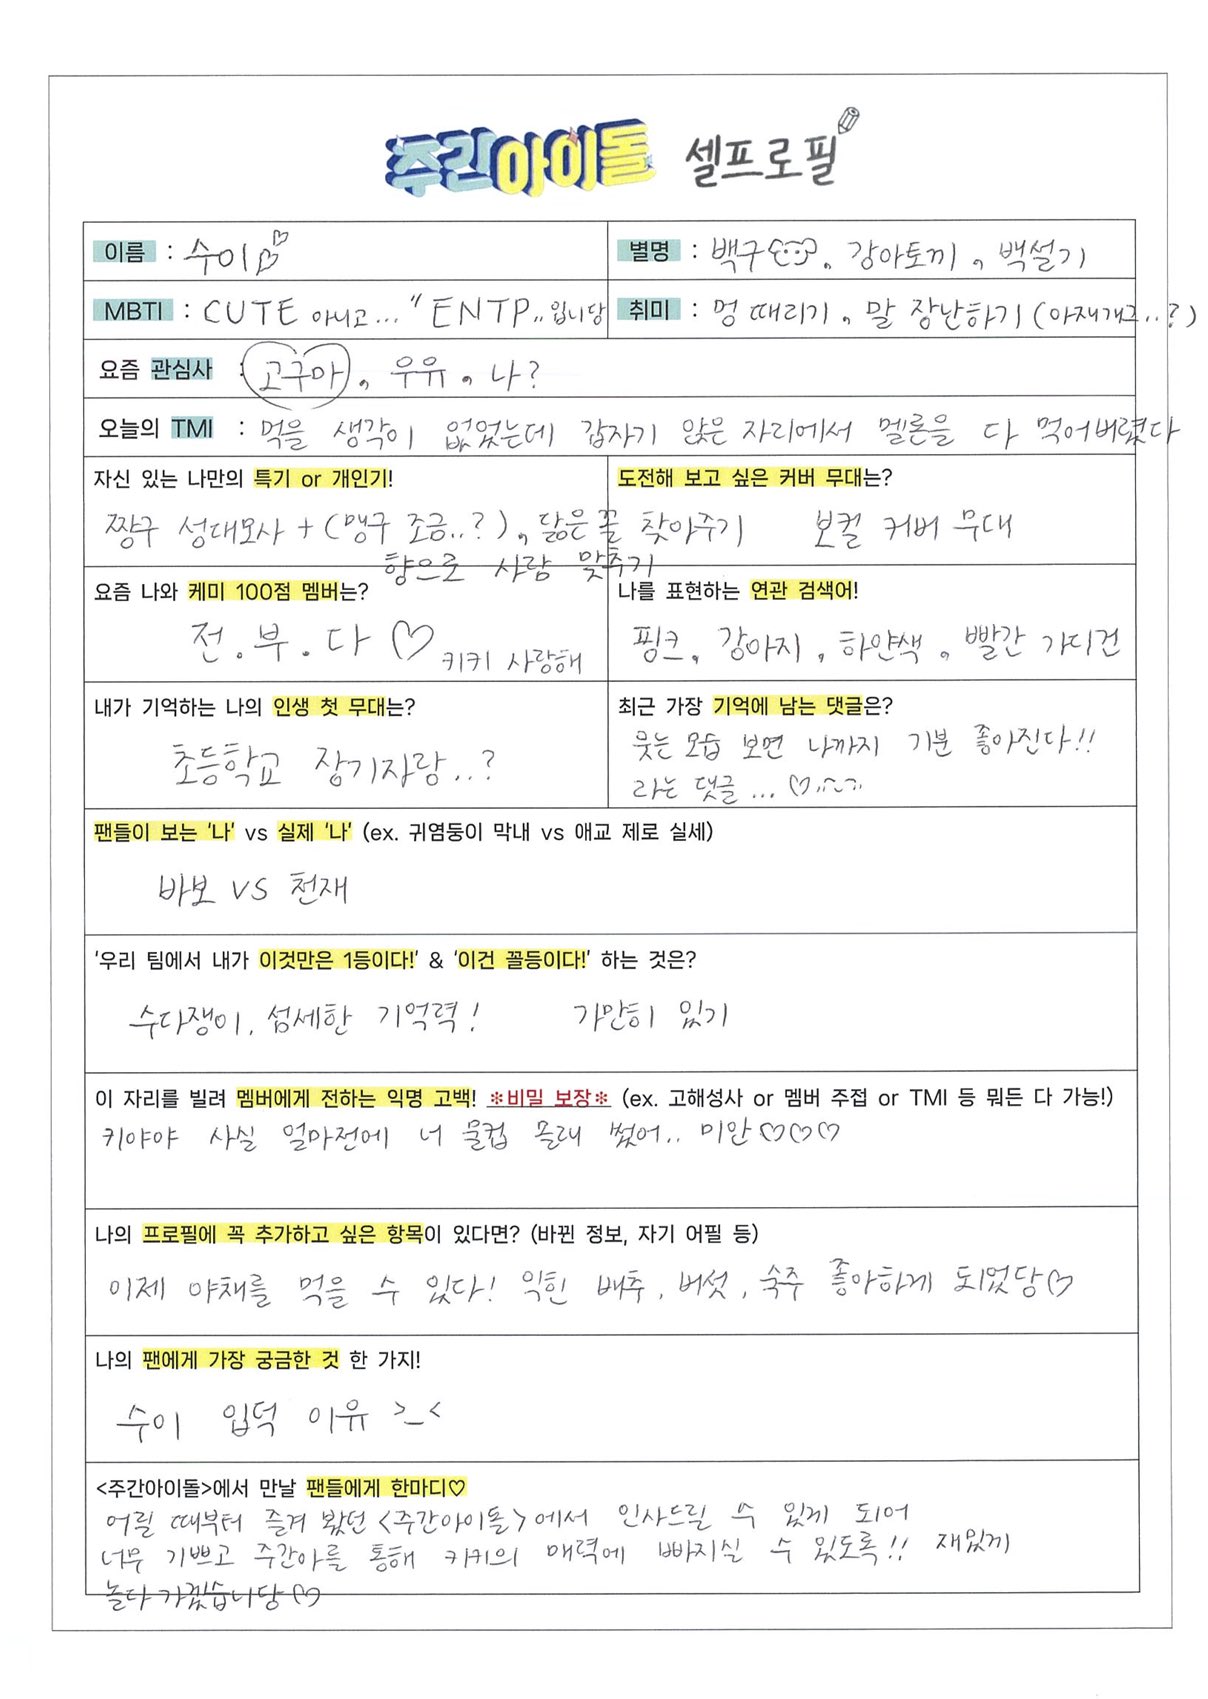 주간아이돌 셀프로필
이름 : 수이♡♡
별명 : 백구, 강아토끼, 백설기
MBTI : CUTE 아니고... "ENTP" 입니당
취미 : 멍 때리기, 말 장난하기 (아재개그..?)
요즘 관심사 : 고구마, 우유, 나?
오늘의 TMI : 먹을 생각이 없었는데 갑자기 앉은 자리에서 멜론을 다 먹어버렸다
자신 있는 나만의 특기 or 개인기!
짱구 성대모사 + (맹구 조금..?), 닮은 꼴 찾아주기
향으로 사람 맞추기
도전해 보고 싶은 커버 무대는?
보컬 커버 무대
요즘 나와 케미 100점 멤버는?
전.부.다 ♡ 키키 사랑해
나를 표현하는 연관 검색어!
핑크, 강아지, 하얀색, 빨간 가디건
내가 기억하는 나의 인생 첫 무대는?
초등학교 장기자랑..?
최근 가장 기억에 남는 댓글은?
웃는 모습 보면 나까지 기분 좋아진다!!
라는 댓글... ♡
팬들이 보는 '나' vs 실제 '나' (ex. 귀염둥이 막내 vs 애교 제로 실세)
바보 VS 천재
'우리 팀에서 내가 이것만은 1등이다!' & '이건 꼴등이다!' 하는 것은?
수다쟁이, 섬세한 기억력! 가만히 있기
이 자리를 빌려 멤버에게 전하는 익명 고백! *비밀 보장* (ex. 고해성사 or 멤버 주접 or TMI 등 뭐든 다 가능!)
키야야 사실 얼마전에 너 물컵 몰래 썼어.. 미안♡♡♡
나의 프로필에 꼭 추가하고 싶은 항목이 있다면? (바뀐 정보, 자기 어필 등)
이제 야채를 먹을 수 있다! 익힌 배추, 버섯, 숙주 좋아하게 되었당♡
나의 팬에게 가장 궁금한 것 한 가지!
수이 입덕 이유 >_<
<주간아이돌>에서 만날 팬들에게 한마디♡
어릴 때부터 즐겨 봤던 <주간아이돌>에서 인사드릴 수 있게 되어
너무 기쁘고 주간아를 통해 키키의 매력에 빠지실 수 있도록!! 재밌게
놀다 가겠습니당♡